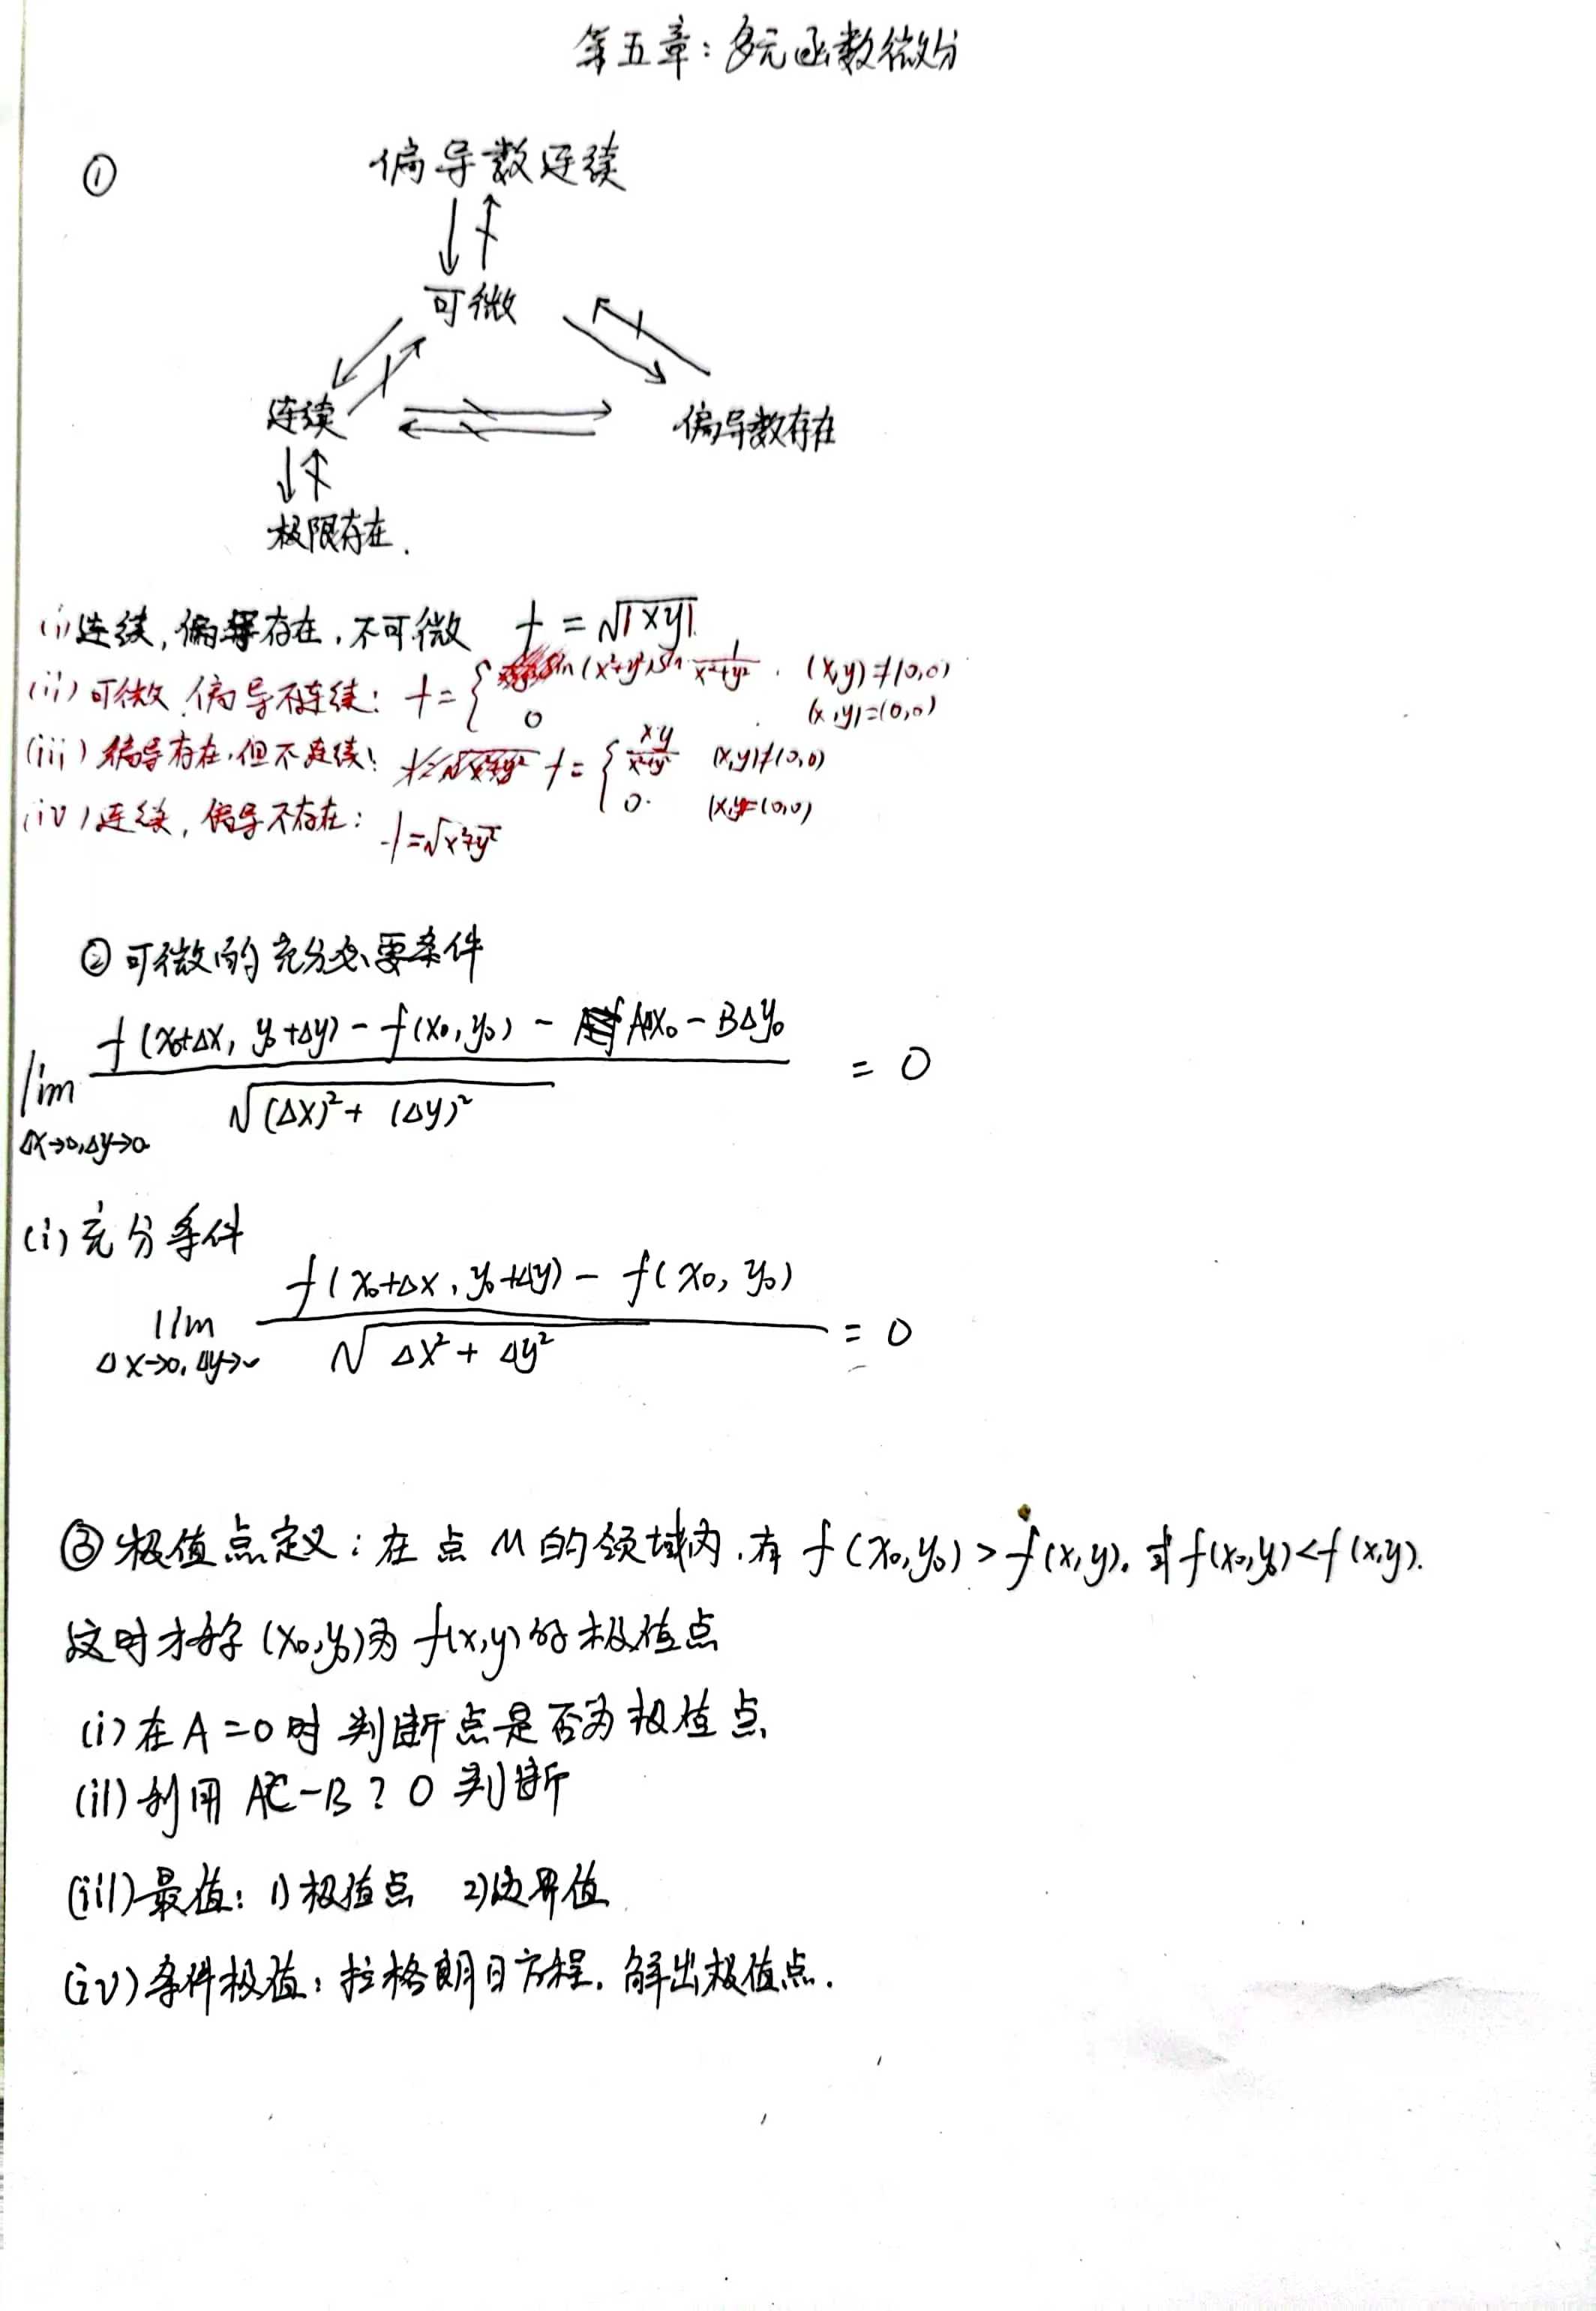 第五章：多元函数微分
①
偏导数连续
可微
连续
偏导数存在
极限存在.
(i) 连续, 偏导存在, 不可微 f = √|xy|
(ii) 可微, 偏导不连续: f = { (x²+y²) sin 1/(x²+y²) . (x,y)≠(0,0)
0 (x,y)=(0,0)
(iii) 偏导存在, 但不连续: f = { xy/(x²+y²) (x,y)≠(0,0)
0. (x,y)=(0,0)
(iv) 连续, 偏导不存在: f=√x²+y²
② 可微的充分必要条件
lim Δx→0,Δy→0 [f(x₀+Δx, y₀+Δy) - f(x₀,y₀) - AΔx₀ - BΔy₀] / √(Δx)²+(Δy)² = 0
(i) 充分条件
lim Δx→0,Δy→0 [f(x₀+Δx, y₀+Δy) - f(x₀, y₀)] / √Δx²+Δy² = 0
③ 极值点定义: 在点 M 的领域内, 有 f(x₀,y₀) > f(x,y). 或 f(x₀,y₀)<f(x,y).
这时才称 (x₀,y₀)为 f(x,y)的极值点
(i) 在 A=0 时 判断点是否为极值点
(ii) 利用 AC-B ? 0 判断
(iii) 最值: 1) 极值点 2) 边界值
(iv) 条件极值: 拉格朗日方程, 解出极值点.